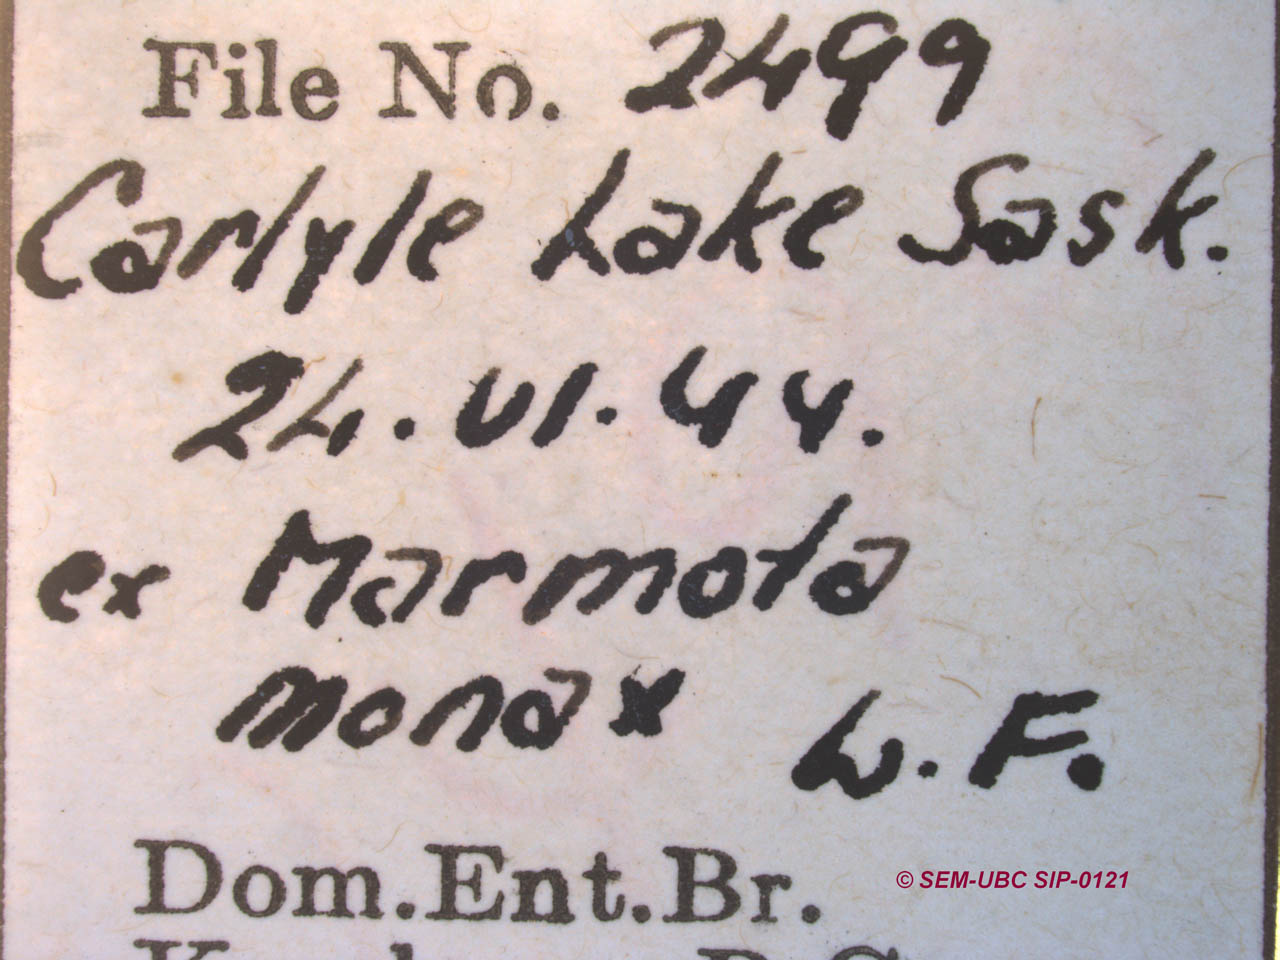 File No. 2499
Carlyle Lake Sask.
24.VI.44.
ex Marmota
monax L.F.
Dom.Ent.Br.
© SEM-UBC SIP-0121